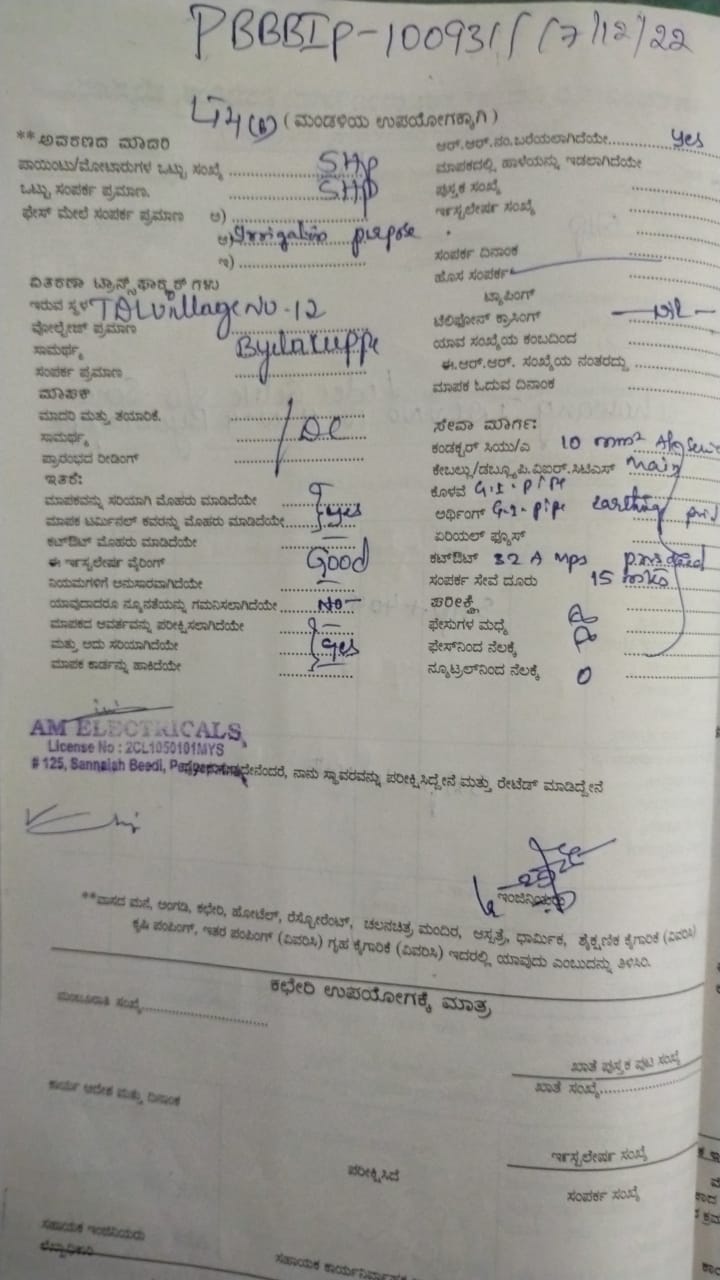 PBBBIP-100931 17/12/22
(ಮಂಡಳಿಯ ಉಪಯೋಗಕ್ಕಾಗಿ)
**ಆವರಣದ ಮಾದರಿ
ಪಾಯಿಂಟು/ಮೋಟಾರುಗಳ ಒಟ್ಟು ಸಂಖ್ಯೆ 5Hp
ಒಟ್ಟು ಸಂಪರ್ಕ ಪ್ರಮಾಣ. 5Hp
ಫೇಸ್ ಮೇಲೆ ಸಂಪರ್ಕ ಪ್ರಮಾಣ ಅ)
ಆ) Irrigation purpose
ಇ)
ವಿತರಣಾ ಟ್ರಾನ್ಸ್‌ಫಾರ್ಮರ್ ಗಳು
ಇರುವ ಸ್ಥಳ TDL Village No-12
ವೋಲ್ಟೇಜ್ ಪ್ರಮಾಣ
ಸಾಮರ್ಥ್ಯ Bylakuppe
ಸಂಪರ್ಕ ಪ್ರಮಾಣ
ಮಾಪಕ
ಮಾದರಿ ಮತ್ತು ತಯಾರಿಕೆ.
ಸಾಮರ್ಥ್ಯ DC
ಪ್ರಾರಂಭದ ರೀಡಿಂಗ್
ಇತರೆ:
ಮಾಪಕವನ್ನು ಸರಿಯಾಗಿ ಮೊಹರು ಮಾಡಿದೆಯೇ
ಮಾಪಕ ಟರ್ಮಿನಲ್ ಕವರನ್ನು ಮೊಹರು ಮಾಡಿದೆಯೇ yes
ಕಟ್‌ಔಟ್ ಮೊಹರು ಮಾಡಿದೆಯೇ
ಈ ಇನ್ಸ್ಟಲೇಷನ್ ವೈರಿಂಗ್ Good
ನಿಯಮಗಳಿಗೆ ಅನುಸಾರವಾಗಿದೆಯೇ
ಯಾವುದಾದರೂ ನ್ಯೂನತೆಯನ್ನು ಗಮನಿಸಲಾಗಿದೆಯೇ No
ಮಾಪಕದ ಆವರ್ತವನ್ನು ಪರೀಕ್ಷಿಸಲಾಗಿದೆಯೇ
ಮತ್ತು ಅದು ಸರಿಯಾಗಿದೆಯೇ yes
ಮಾಪಕ ಕಾರ್ಡನ್ನು ಹಾಕಿದೆಯೇ
ಆರ್.ಆರ್.ನಂ.ಬರೆಯಲಾಗಿದೆಯೇ yes
ಮಾಪಕದಲ್ಲಿ ಹಾಳೆಯನ್ನು ಇಡಲಾಗಿದೆಯೇ
ಪುಸ್ತಕ ಸಂಖ್ಯೆ
ಇನ್ಸ್ಟಲೇಷನ್ ಸಂಖ್ಯೆ
ಸಂಪರ್ಕ ದಿನಾಂಕ
ಹೊಸ ಸಂಪರ್ಕ
ಟ್ಯಾಪಿಂಗ್
ಟೆಲಿಫೋನ್ ಕ್ರಾಸಿಂಗ್ —Nil—
ಯಾವ ಸಂಖ್ಯೆಯ ಕಂಬದಿಂದ
ಈ.ಆರ್.ಆರ್. ಸಂಖ್ಯೆಯ ನಂತರದ್ದು
ಮಾಪಕ ಓದುವ ದಿನಾಂಕ
ಸೇವಾ ಮಾರ್ಗ:
ಕಂಡಕ್ಟರ್ ಸಿಯು/ಎ 10 mm²
ಕೇಬಲ್ಲು/ಡಬ್ಲ್ಯೂಪಿ.ವಿಐಆರ್.ಸಿಟಿಎಸ್ main
ಕೊಳವೆ G.I. Pipe
ಅರ್ಥಿಂಗ್ G.I. pipe earthing
ಏರಿಯಲ್ ಫ್ಯೂಸ್
ಕಟ್‌ಔಟ್ 32 Amps provided
ಸಂಪರ್ಕ ಸೇವೆ ದೂರು 15 mts
ಪರೀಕ್ಷೆ
ಫೇಸುಗಳ ಮಧ್ಯೆ
ಫೇಸ್‌ನಿಂದ ನೆಲಕ್ಕೆ
ನ್ಯೂಟ್ರಲ್‌ನಿಂದ ನೆಲಕ್ಕೆ 0
AM ELECTRICALS
License No : 2CL1050101MYS
# 125, Sannaiah Beedi,
ನಾನು ಸ್ಥಾವರವನ್ನು ಪರೀಕ್ಷಿಸಿದ್ದೇನೆ ಮತ್ತು ರೇಟೆಡ್ ಮಾಡಿದ್ದೇನೆ
ಇಂಜಿನಿಯರು
**ವಾಸದ ಮನೆ, ಅಂಗಡಿ, ಕಛೇರಿ, ಹೋಟೆಲ್, ರೆಸ್ಟೋರೆಂಟ್, ಚಲನಚಿತ್ರ ಮಂದಿರ, ಆಸ್ಪತ್ರೆ, ಧಾರ್ಮಿಕ, ಶೈಕ್ಷಣಿಕ ಕೈಗಾರಿಕೆ (ವಿವರಿಸಿ)
ಕೃಷಿ ಪಂಪಿಂಗ್, ಇತರ ಪಂಪಿಂಗ್ (ವಿವರಿಸಿ) ಗೃಹ ಕೈಗಾರಿಕೆ (ವಿವರಿಸಿ) ಇದರಲ್ಲಿ ಯಾವುದು ಎಂಬುದನ್ನು ತಿಳಿಸಿರಿ.
ಕಛೇರಿ ಉಪಯೋಗಕ್ಕೆ ಮಾತ್ರ
ಮಂಜೂರಾತಿ ಸಂಖ್ಯೆ
ಖಾತೆ ಪುಸ್ತಕ ಪುಟ ಸಂಖ್ಯೆ
ಖಾತೆ ಸಂಖ್ಯೆ
ಕಾರ್ಯ ಆದೇಶ ಮತ್ತು ದಿನಾಂಕ
ಇನ್ಸ್ಟಲೇಷನ್ ಸಂಖ್ಯೆ
ಪರೀಕ್ಷಿಸಿದೆ
ಸಂಪರ್ಕ ಸಂಖ್ಯೆ
ಸಹಾಯಕ ಇಂಜಿನಿಯರು
ಲೆಕ್ಕಾಧಿಕಾರಿ